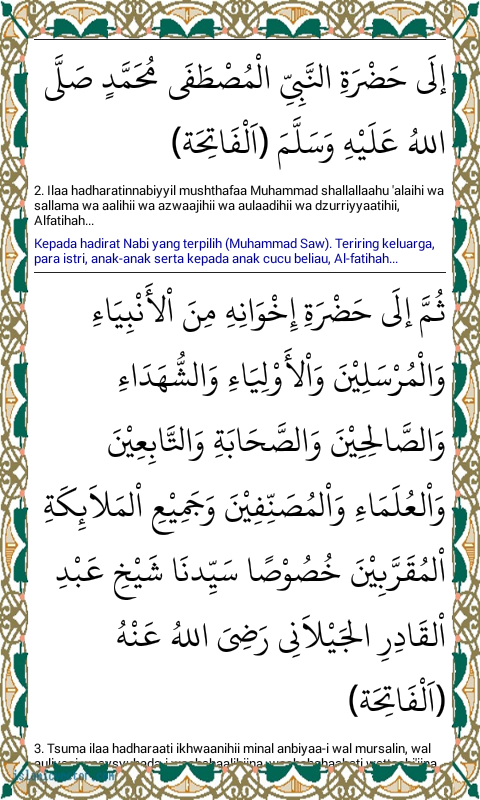 إلَى حَضْرَةِ النَّبِيِّ الْمُصْطَفَى مُحَمَّدٍ صَلَّى
اللهُ عَلَيْهِ وَسَلَّمَ (اَلْفَاتِحَة)
2. Ilaa hadharatinnabiyyil mushthafaa Muhammad shallallaahu 'alaihi wa
sallama wa aalihii wa azwaajihii wa aulaadihii wa dzurriyyaatihii,
Alfatihah...
Kepada hadirat Nabi yang terpilih (Muhammad Saw). Teriring keluarga,
para istri, anak-anak serta kepada anak cucu beliau, Al-fatihah...
ثُمَّ إلَى حَضْرَةِ إِخْوَانِهِ مِنَ اْلأَنْبِيَاءِ
وَالْمُرْسَلِيْنَ وَاْلأَوْلِيَاءِ وَالشُّهَدَاءِ
وَالصَّالِحِيْنَ وَالصَّحَابَةِ وَالتَّابِعِيْنَ
وَاْلعُلَمَاءِ وَاْلمُصَنِّفِيْنَ وَجَمِيْعِ اْلمَلاَئِكَةِ
اْلمُقَرَّبِيْنَ خُصُوْصًا سَيِّدِنَا شَيْخِ عَبْدِ
اْلقَادِرِ الجَيْلاَنِى رَضِىَ اللهُ عَنْهُ
(اَلْفَاتِحَة)
3. Tsuma ilaa hadharaati ikhwaanihii minal anbiyaa-i wal mursalin, wal